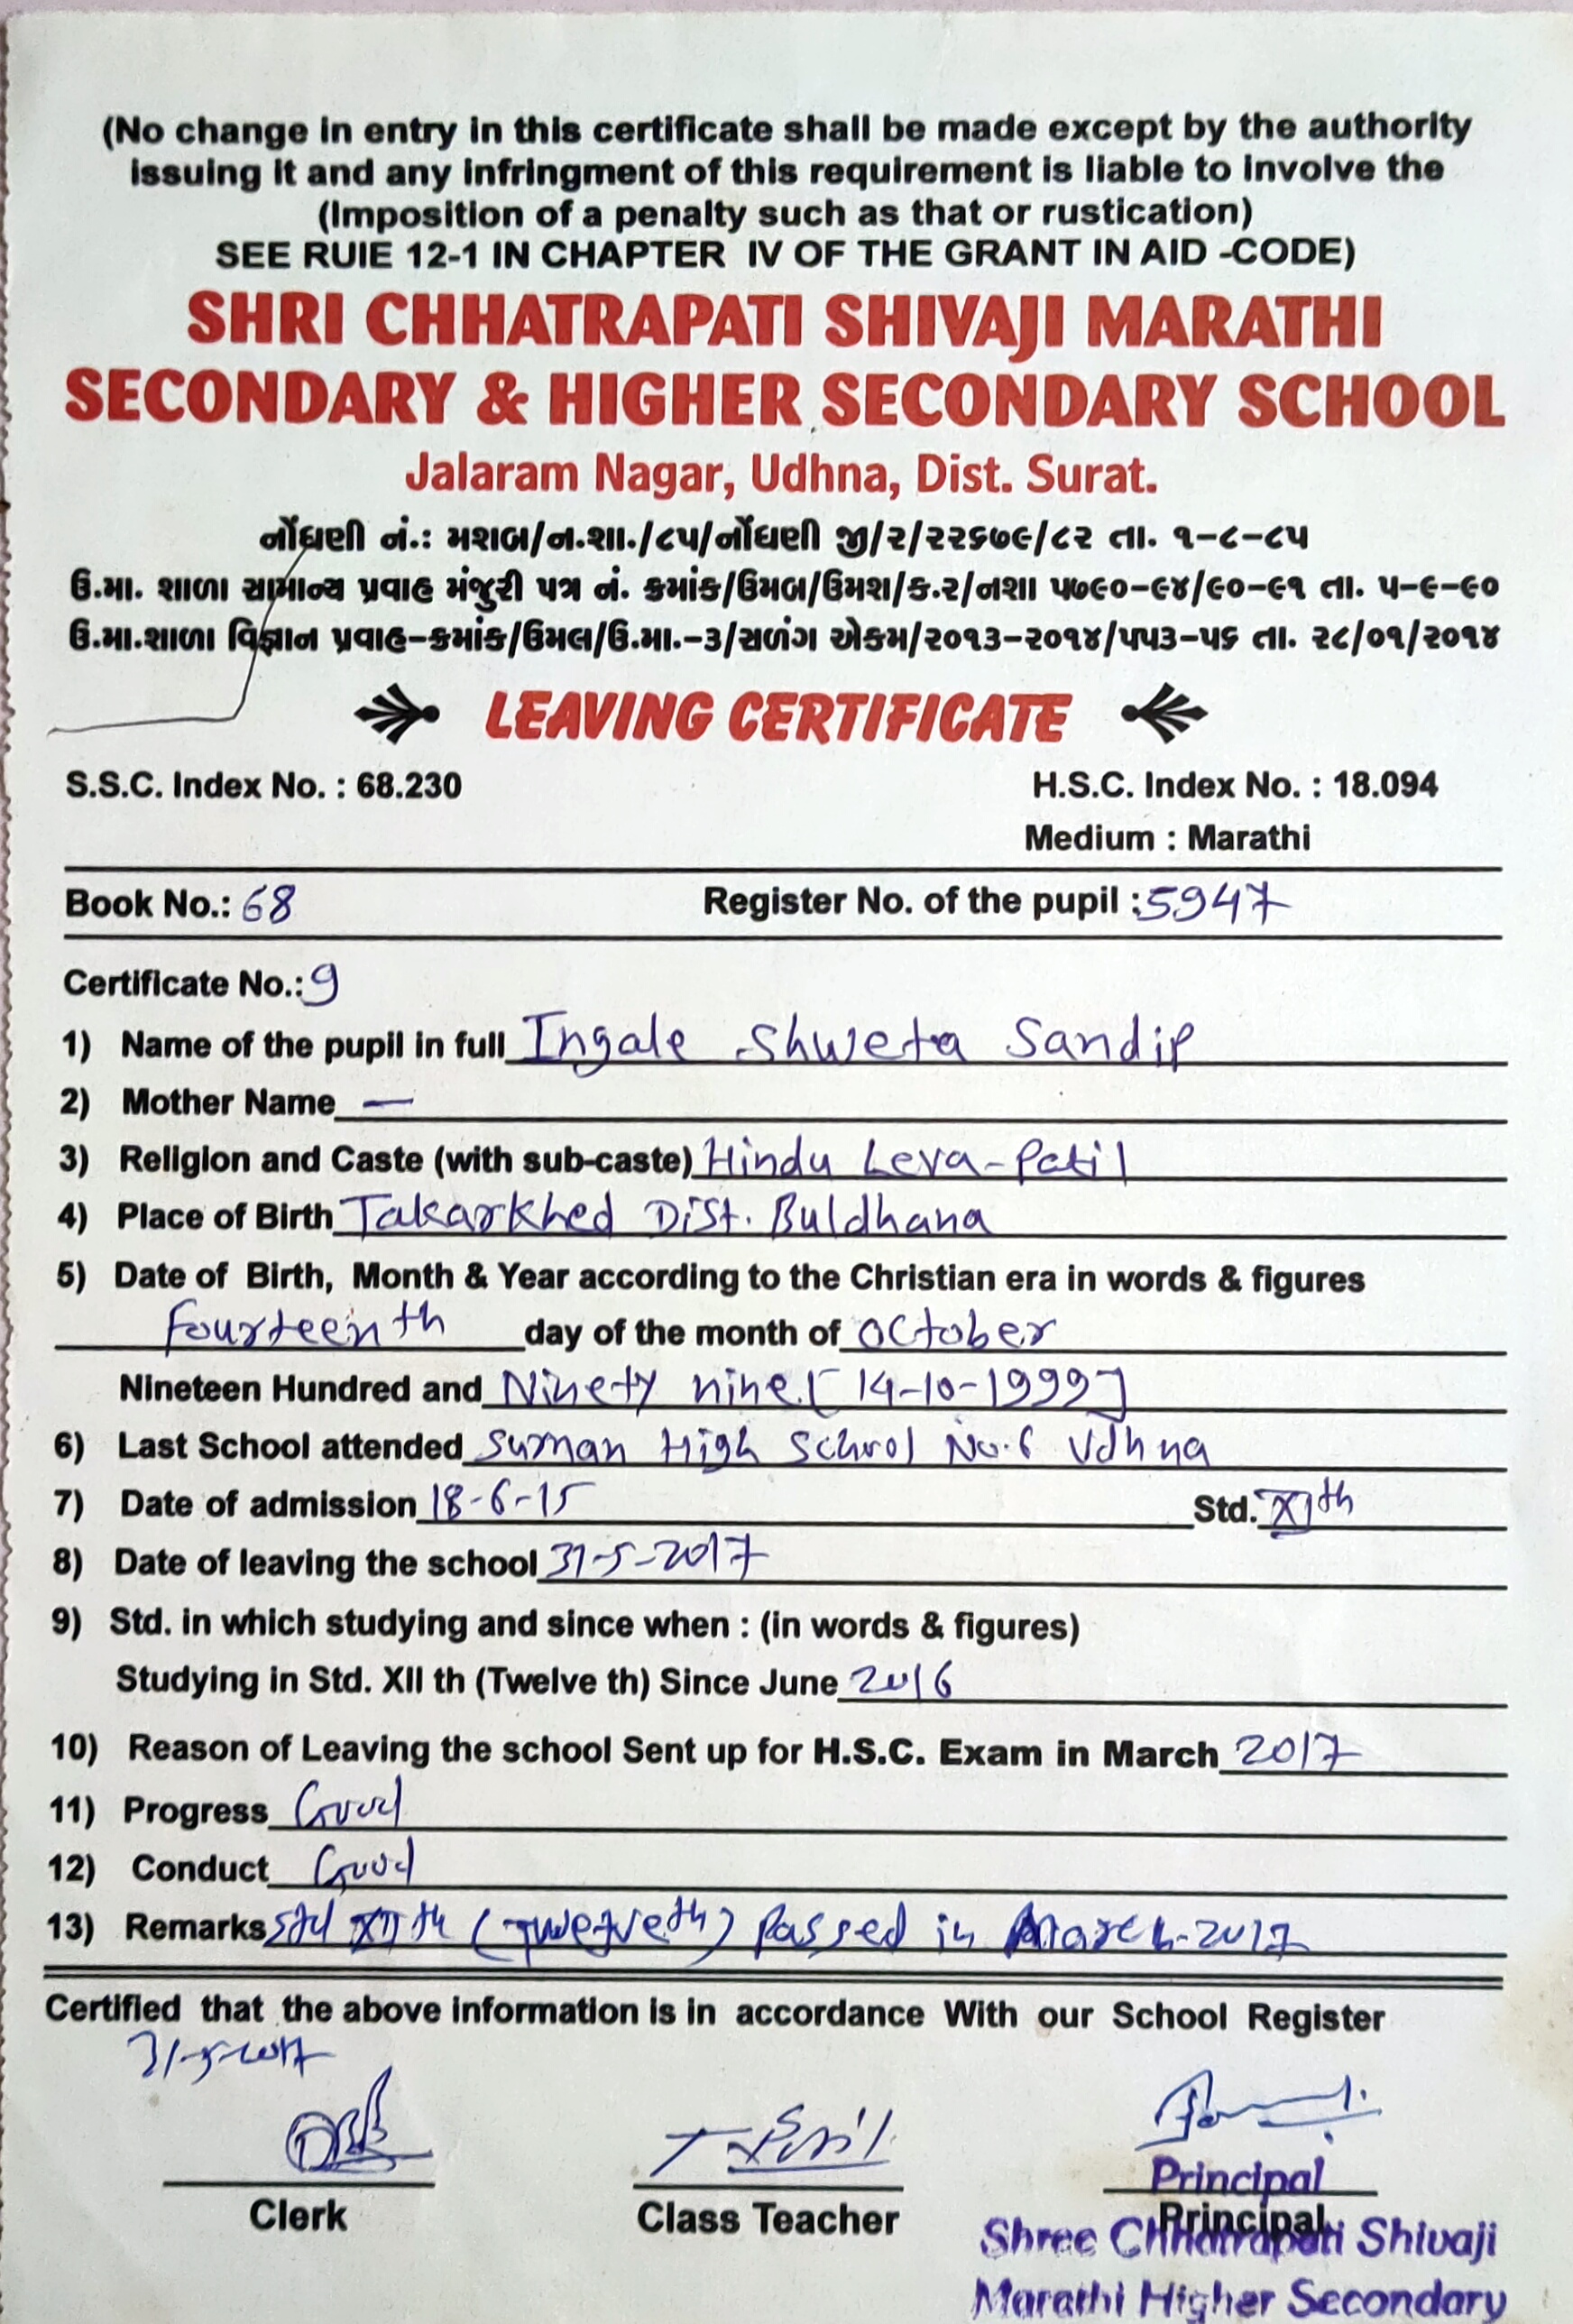 (No change in entry in this certificate shall be made except by the authority
issuing it and any infringment of this requirement is liable to involve the
(Imposition of a penalty such as that or rustication)
SEE RUIE 12-1 IN CHAPTER IV OF THE GRANT IN AID -CODE)
SHRI CHHATRAPATI SHIVAJI MARATHI
SECONDARY & HIGHER SECONDARY SCHOOL
Jalaram Nagar, Udhna, Dist. Surat.
નોંધણી નં.: મશબ/ન.શા./૮૫/નોંધણી જી/૨/૨૨૬૭૯/૮૨ તા. ૧-૮-૮૫
ઉ.મા. શાળા સામાન્ય પ્રવાહ મંજુરી પત્ર નં. ક્રમાંક/ઉમબ/ઉમશ/ક.૨/નશા ૫૭૯૦-૯૪/૯૦-૯૧ તા. ૫-૯-૯૦
ઉ.મા.શાળા વિજ્ઞાન પ્રવાહ-ક્રમાંક/ઉમલ/ઉ.મા.-૩/સળંગ એકમ/૨૦૧૩-૨૦૧૪/૫૫૩-૫૬ તા. ૨૮/૦૧/૨૦૧૪
LEAVING CERTIFICATE
S.S.C. Index No. : 68.230 H.S.C. Index No. : 18.094
Medium : Marathi
Book No.: 68 Register No. of the pupil : 5947
Certificate No.: 9
1) Name of the pupil in full Ingale Shweta Sandip
2) Mother Name —
3) Religion and Caste (with sub-caste) Hindu Leva-Patil
4) Place of Birth Takarkhed Dist. Buldhana
5) Date of Birth, Month & Year according to the Christian era in words & figures
Fourteenth day of the month of October
Nineteen Hundred and Ninety nine [14-10-1999]
6) Last School attended Suman High School No.6 Udhna
7) Date of admission 18-6-15 Std. XIth
8) Date of leaving the school 31-5-2017
9) Std. in which studying and since when : (in words & figures)
Studying in Std. XII th (Twelve th) Since June 2016
10) Reason of Leaving the school Sent up for H.S.C. Exam in March 2017
11) Progress Good
12) Conduct Good
13) Remarks Std XIIth (Twelveth) Passed in March-2017
Certified that the above information is in accordance With our School Register
31-5-2017
Clerk Class Teacher Principal
Principal
Shree Chhatrapati Shivaji
Marathi Higher Secondary